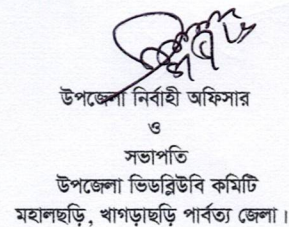 উপজেলা নির্বাহী অফিসার
ও
সভাপতি
উপজেলা ভিডব্লিউবি কমিটি
মহালছড়ি, খাগড়াছড়ি পার্বত্য জেলা।